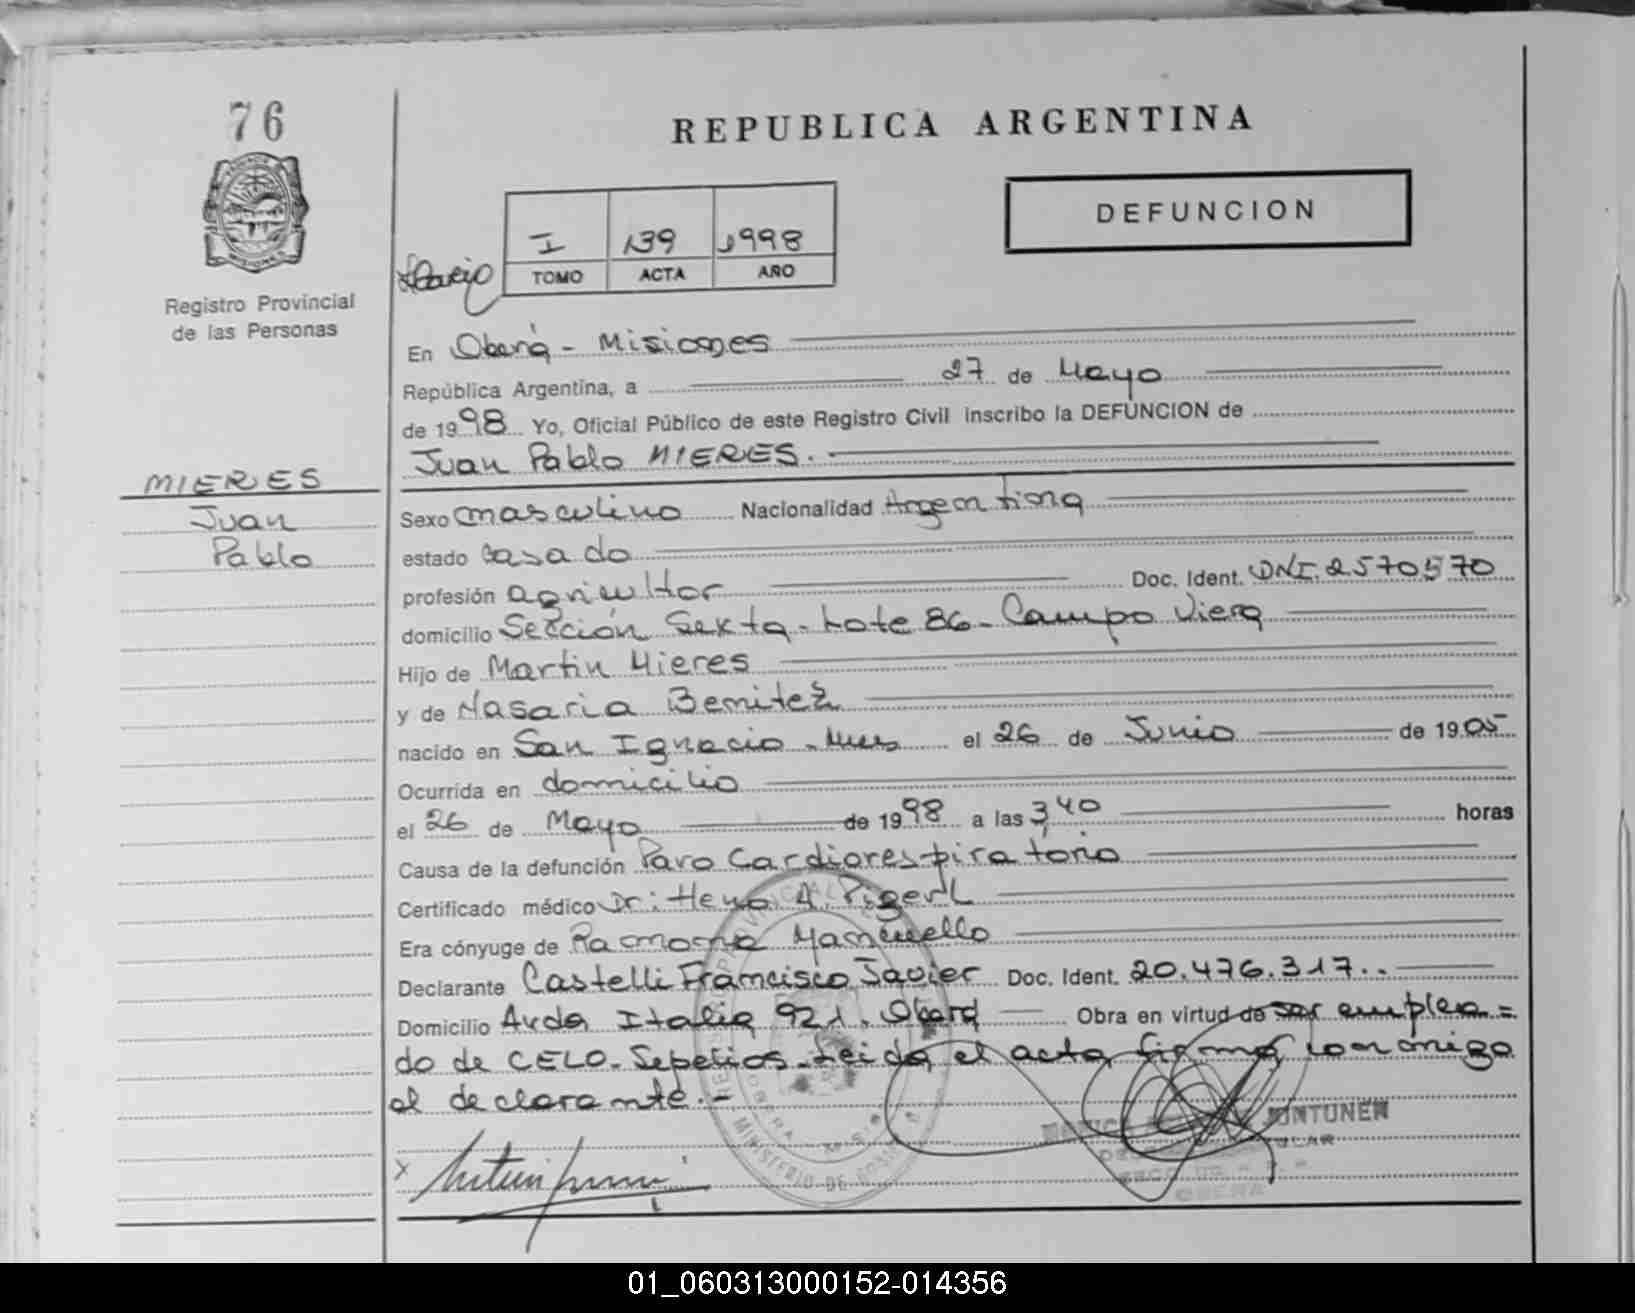 76
REPUBLICA ARGENTINA
DEFUNCION
I 139 1998
TOMO ACTA AÑO
MISIONES
Registro Provincial
de las Personas
En Oberá - Misiones
República Argentina, a 27 de Mayo
de 1998 Yo, Oficial Público de este Registro Civil inscribo la DEFUNCION de
Juan Pablo MIERES.-
MIERES
Juan
Pablo
Sexo masculino Nacionalidad Argentina
estado Casado
profesión agricultor Doc. Ident. DNI. 2570570
domicilio Sección Sexta - Lote 86 - Campo Viera
Hijo de Martin Mieres
y de Nasaria Benitez
nacido en San Ignacio - Mnes el 26 de Junio de 1905
Ocurrida en domicilio
el 26 de Mayo de 1998 a las 3,40 horas
Causa de la defunción Paro Cardiorespiratorio
Certificado médico Dr: A. Pigerl
Era cónyuge de Ramona
Declarante Castelli Francisco Javier Doc. Ident. 20.476.317..
Domicilio Avda Italia 921. Oberá Obra en virtud de ser emplea=
do de CELO - Sepelios - Leida el acta, firma conmigo
el declarante.-
OBERA
01_060313000152-014356